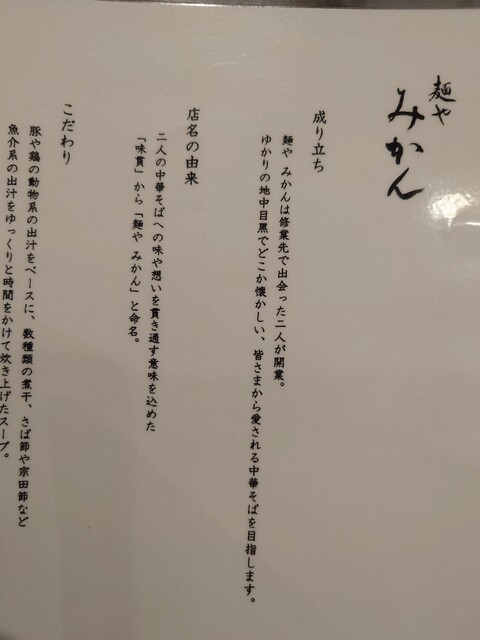 麺や
みかん
成り立ち
麺や みかんは修業先で出会った二人が開業。
ゆかりの地中目黒でどこか懐かしい、皆さまから愛される中華そばを目指します。
店名の由来
二人の中華そばへの味や想いを貫き通す意味を込めた
「味貫」から「麺や みかん」と命名。
こだわり
豚や鶏の動物系の出汁をベースに、数種類の煮干、さば節や宗田節など
魚介系の出汁をゆっくりと時間をかけて炊き上げたスープ。